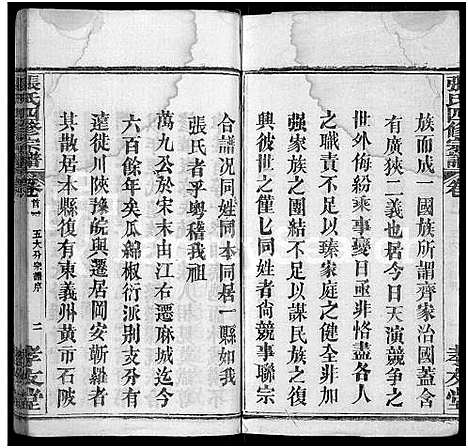 張氏四修宗譜
卷首
孝友堂
族而成一國族所謂齊家治國蓋含
有廣狹二義也居今日天演競爭之
世外侮紛乘事變亟非恪盡各人
之職責不可以臻家庭之健全非加
強家族之團結不可以謀民族之復
興彼世之僅匕同姓者尚競事聯宗
合譜況同姓同本同居一縣如我
張氏者乎粵稽我祖
萬九公於宋末由江右遷麻城迄今
六百餘年矣瓜綿椒衍派別支分有
遠徙川陝豫皖與遷居岡安蘄羅者
其散居本縣復有東義州黃市石陂
張氏四修宗譜
卷首
五大分宗譜序
二
孝友堂